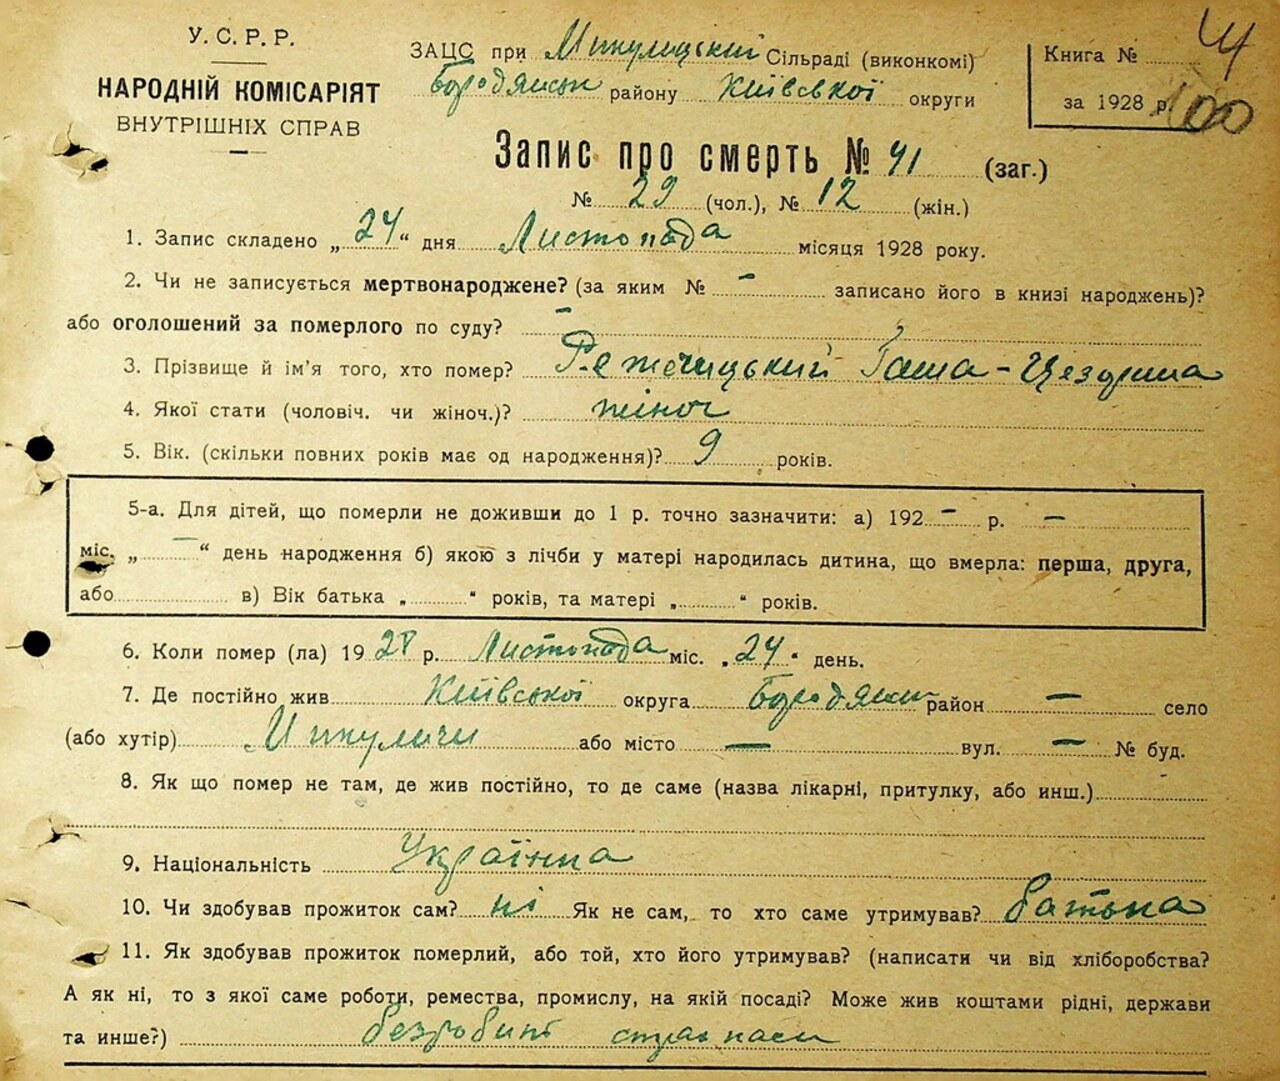 У. С. Р. Р.
НАРОДНІЙ КОМІСАРІЯТ
ВНУТРІШНІХ СПРАВ
ЗАЦС при Микулицький Сільраді (виконкомі)
Бородянськ району Київської округи
Книга №
за 1928 р. 100
Запис про смерть № 41 (заг.)
№ 29 (чол.), № 12 (жін.)
1. Запис складено „24“ дня Листопада місяця 1928 року.
2. Чи не записується мертвонароджене? (за яким № - записано його в книзі народжень)?
або оголошений за померлого по суду? -
3. Прізвище й ім'я того, хто помер?
4. Якої стати (чоловіч. чи жіноч.)? жіноч
5. Вік. (скільки повних років має од народження)? 9 років.
5-а. Для дітей, що померли не доживши до 1 р. точно зазначити: а) 192 - р. -
міс. „ - “ день народження б) якою з лічби у матері народилась дитина, що вмерла: перша, друга,
або в) Вік батька „ “ років, та матері „ “ років.
6. Коли помер (ла) 1928 р. Листопада міс. „24“ день.
7. Де постійно жив Київської округа Бородянськ район - село
(або хутір) Микуличи або місто - вул. - № буд.
8. Як що помер не там, де жив постійно, то де саме (назва лікарні, притулку, або инш.)
9. Національність Українка
10. Чи здобував прожиток сам? ні Як не сам, то хто саме утримував? батька
11. Як здобував прожиток померлий, або той, хто його утримував? (написати чи від хліборобства?
А як ні, то з якої саме роботи, ремества, промислу, на якій посаді? Може жив коштами рідні, держави
та инше?) безробит страхкаси